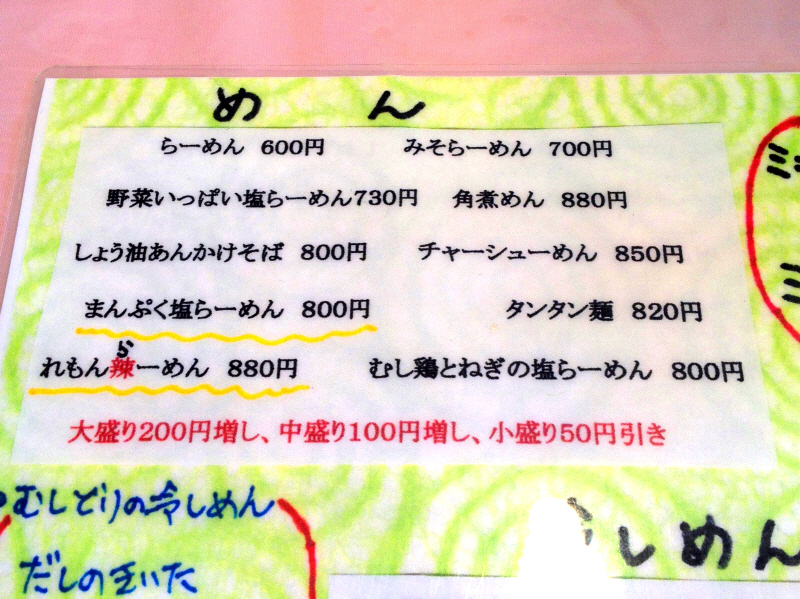 めん
らーめん 600円 みそらーめん 700円
野菜いっぱい塩らーめん730円 角煮めん 880円
しょう油あんかけそば 800円 チャーシューめん 850円
まんぷく塩らーめん 800円 タンタン麺 820円
ら
れもん辣ーめん 880円 むし鶏とねぎの塩らーめん 800円
大盛り200円増し、中盛り100円増し、小盛り50円引き
むしどりの冷しめん
だしのきいた
しめん